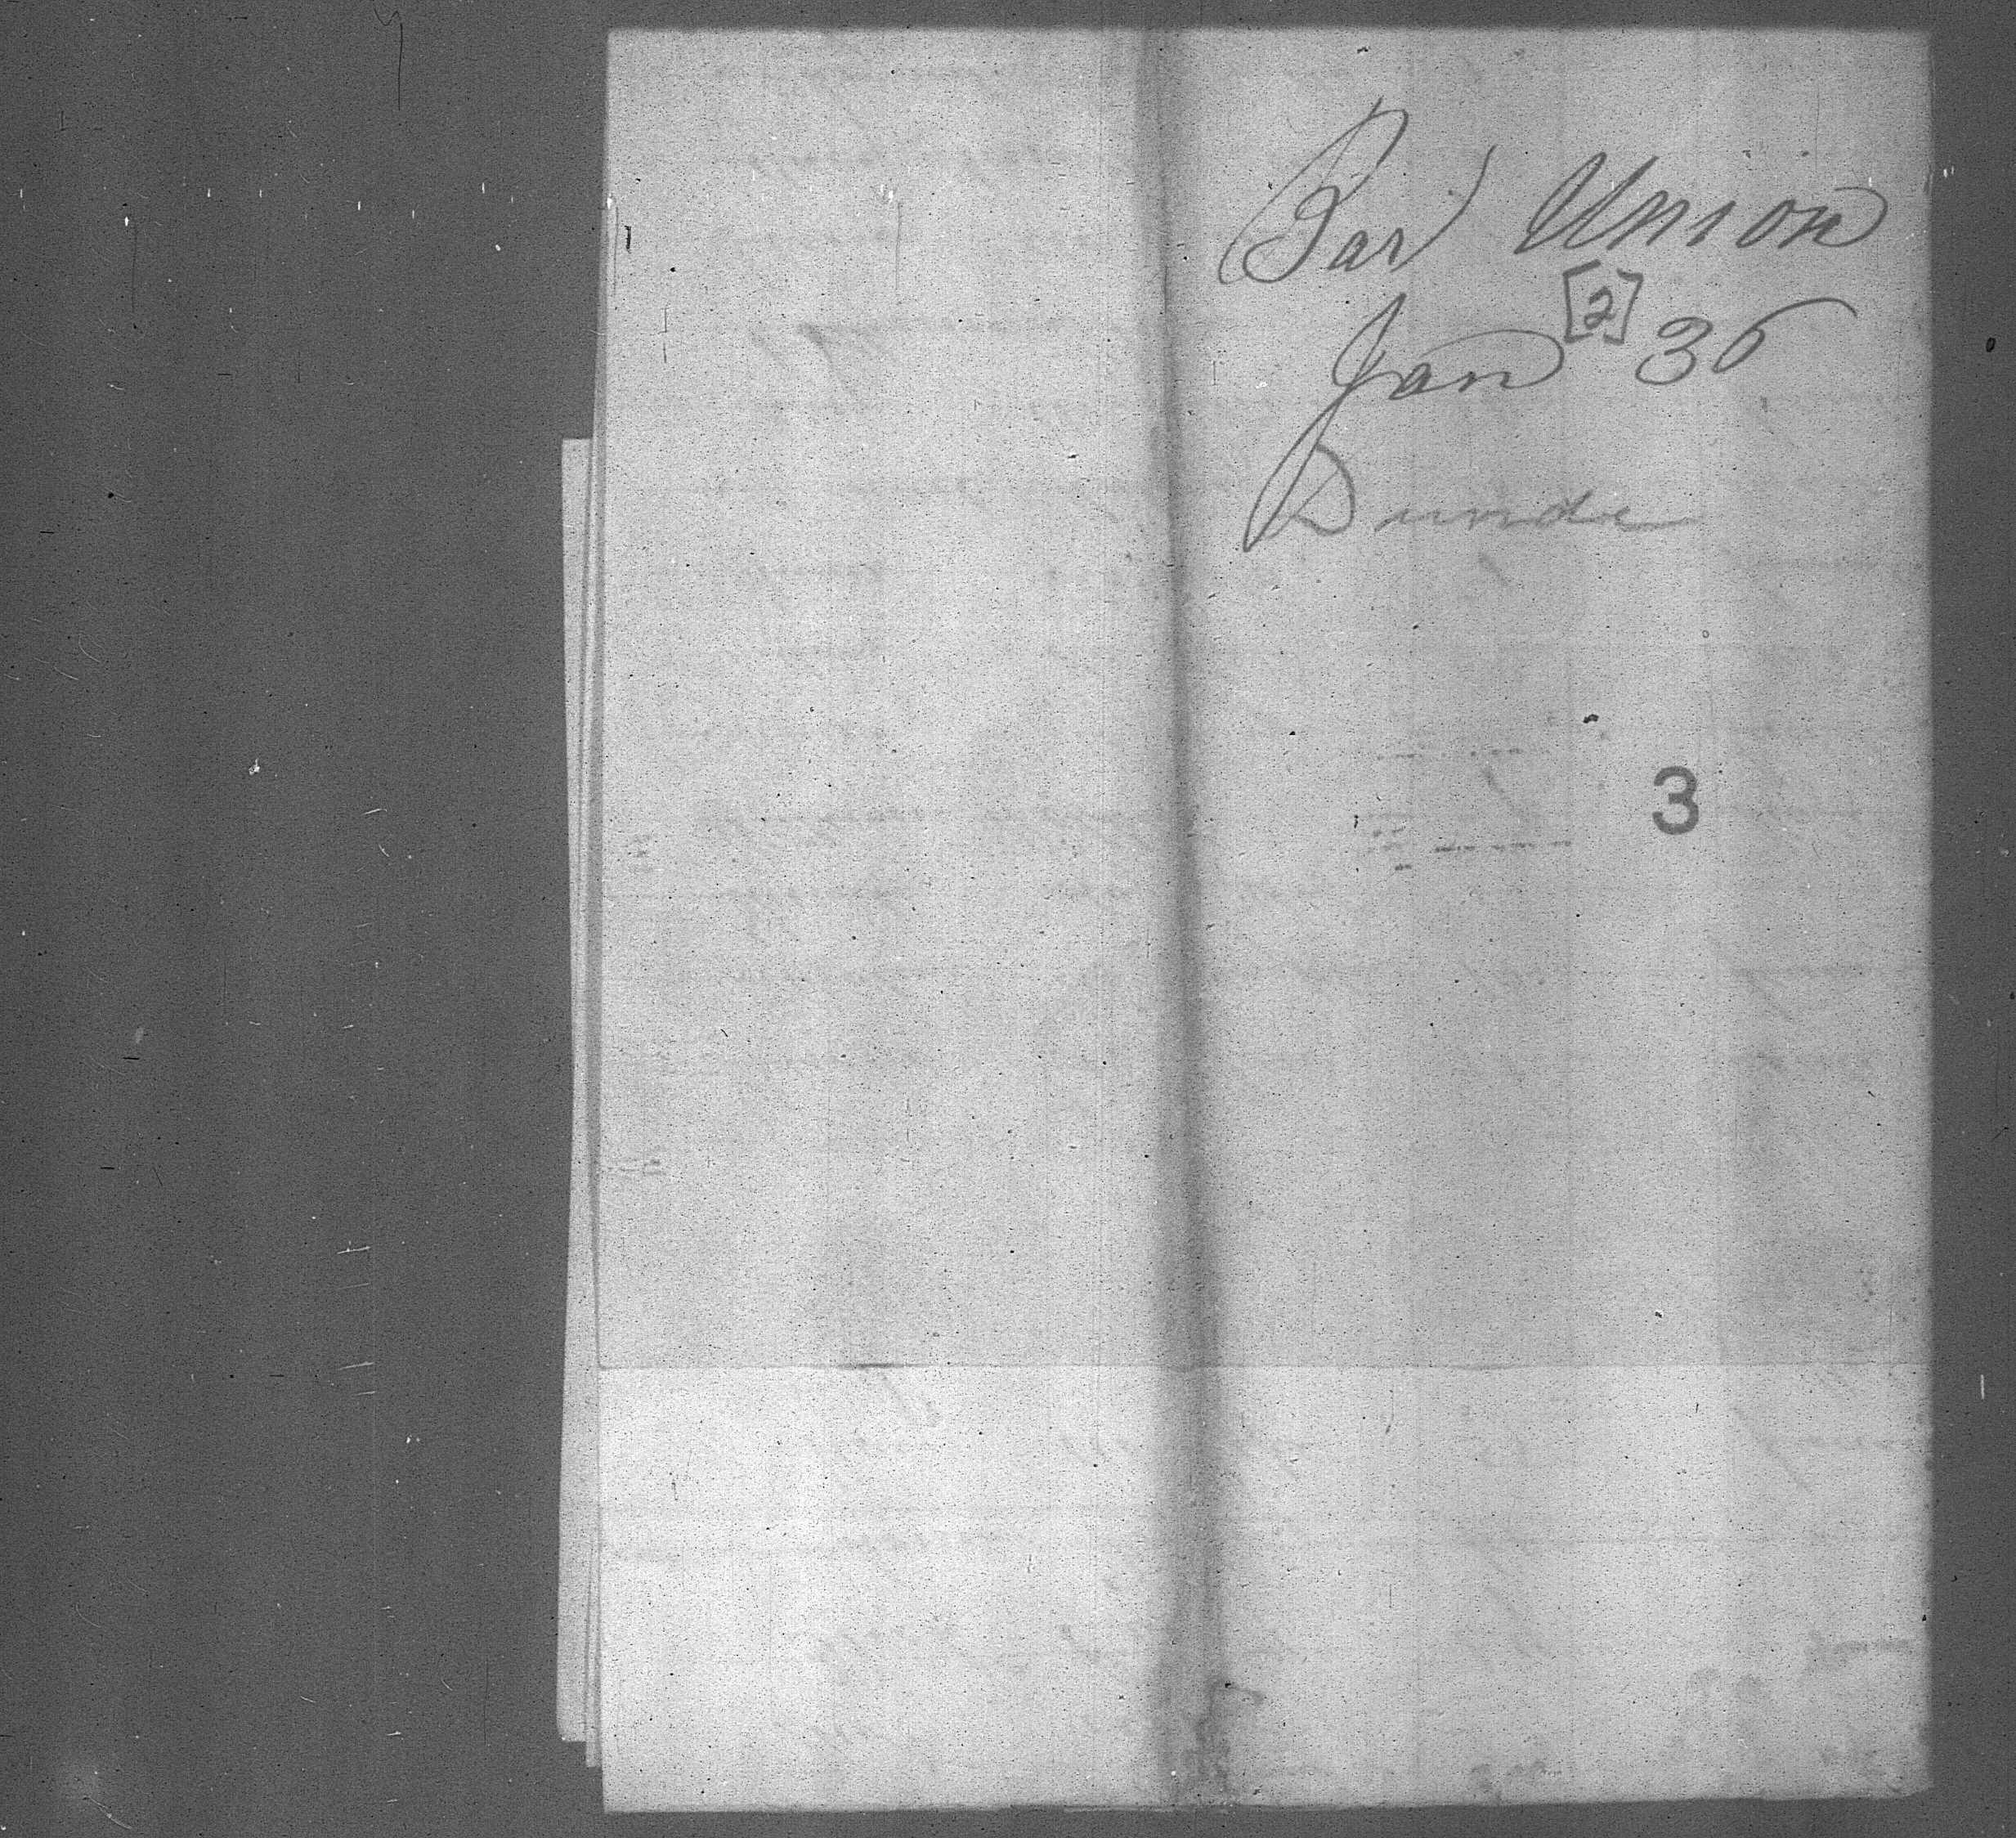 Bar Union
[2]
Jan 30
Dunde
3